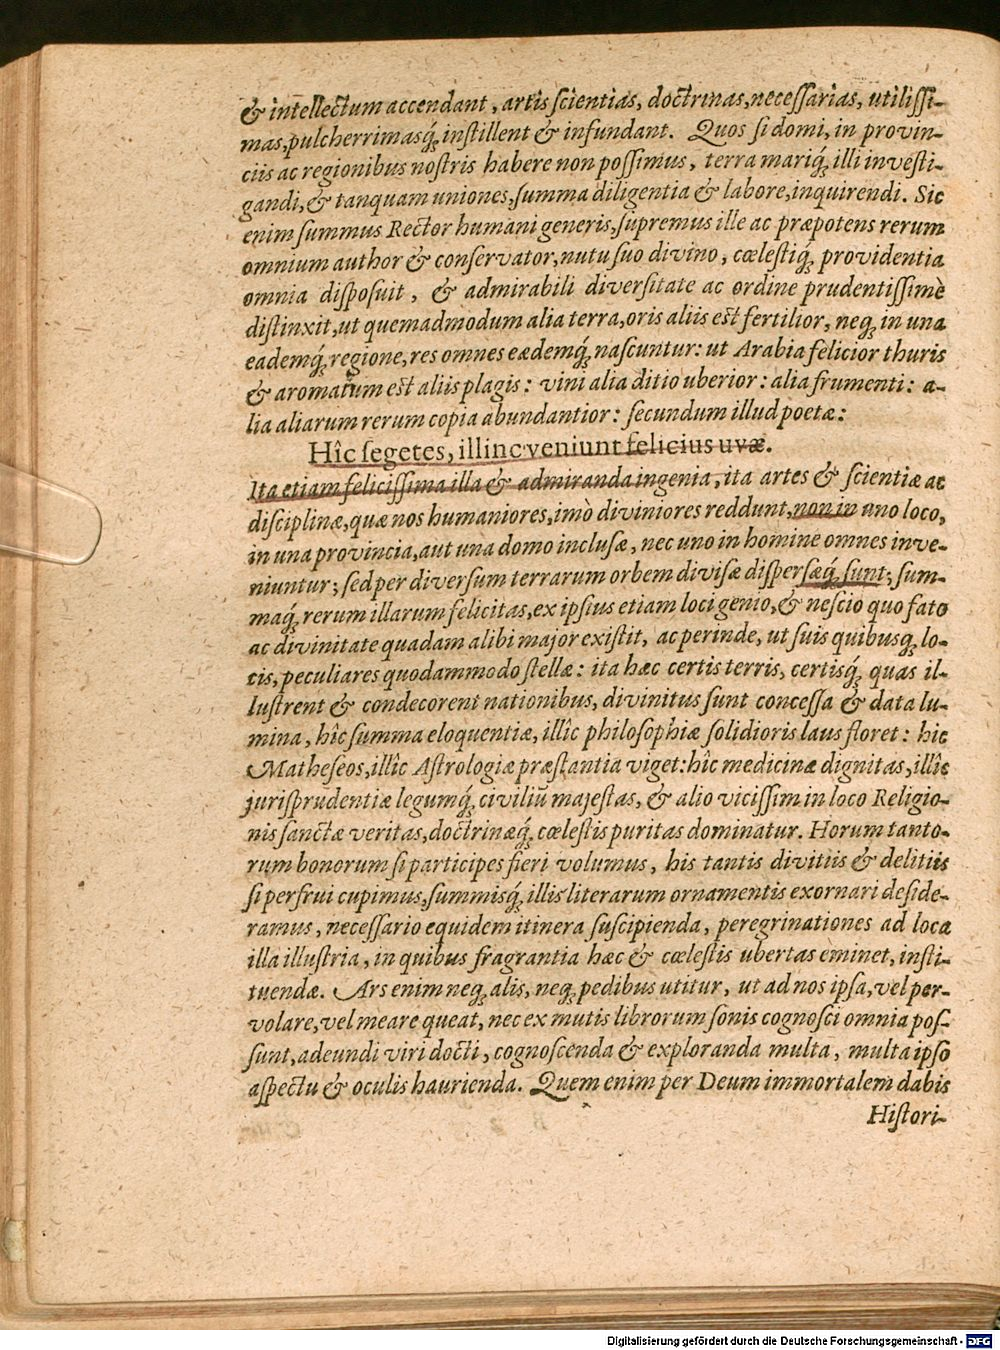 & intellectum accendant, artis scientias, doctrinas, necessarias, utilissi-
mas, pulcherrimasq́; instillent & infundant. Quos si domi, in provin-
ciis ac regionibus nostris habere non possimus, terra mariq́; illi investi-
gandi, & tanquam uniones, summa diligentia & labore, inquirendi. Sic
enim summus Rector humani generis, supremus ille ac præpotens rerum
omnium author & conservator, nutu suo divino, cœlestiq́; providentia
omnia disposuit, & admirabili diversitate ac ordine prudentissimè
distinxit, ut quemadmodum alia terra, oris aliis est fertilior, neq; in una
eademq́; regione, res omnes eædemq́; nascuntur: ut Arabia felicior thuris
& aromatum est aliis plagis: vini alia ditio uberior: alia frumenti: a-
lia aliarum rerum copia abundantior: secundum illud poetæ:
Hîc segetes, illinc veniunt felicius uvæ.
Ita etiam felicissima illa & admiranda ingenia, ita artes & scientiæ ac
disciplinæ, quæ nos humaniores, imò diviniores reddunt, non in uno loco,
in una provincia, aut una domo inclusæ, nec uno in homine omnes inve-
niuntur; sed per diversum terrarum orbem divisæ dispersæq́; sunt; sum-
maq́; rerum illarum felicitas, ex ipsius etiam loci genio, & nescio quo fato
ac divinitate quadam alibi major existit, ac perinde, ut suis quibusq; lo-
cis, peculiares quodammodo stellæ: ita hæc certis terris, certisq́; quas il-
lustrent & condecorent nationibus, divinitus sunt concessa & data lu-
mina, hîc summa eloquentiæ, illîc philosophiæ solidioris laus floret: hic
Matheseos, illîc Astrologiæ præstantia viget: hîc medicinæ dignitas, illîc
jurisprudentiæ legumq́; civiliũ majestas, & alio vicissim in loco Religio-
nis sanctæ veritas, doctrinæq́; cœlestis puritas dominatur. Horum tanto-
rum bonorum si participes fieri volumus, his tantis divitiis & delitiis
si perfrui cupimus, summisq́; illis literarum ornamentis exornari deside-
ramus, necessario equidem itinera suscipienda, peregrinationes ad loca
illa illustria, in quibus fragrantia hæc & cœlestis ubertas eminet, insti-
tuendæ. Ars enim neq; alis, neq; pedibus utitur, ut ad nos ipsa, vel per-
volare, vel meare queat, nec ex mutis librorum sonis cognosci omnia pos-
sunt, adeundi viri docti, cognoscenda & exploranda multa, multa ipso
aspectu & oculis haurienda. Quem enim per Deum immortalem dabis
Histori-
Digitalisierung gefördert durch die Deutsche Forschungsgemeinschaft - DFG